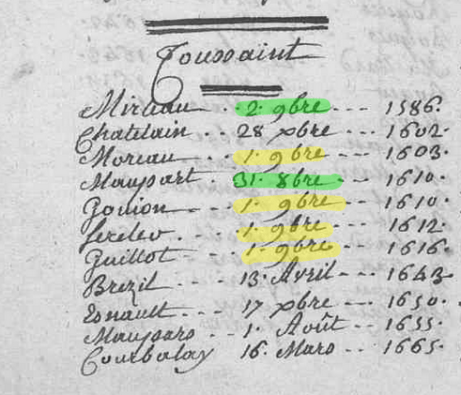 Toussaint
Mireau 2. 9bre 1586.
Chatelain 28 xbre 1602.
Moreau 1. 9bre 1603.
Maupart 31. 8bre 1610.
Gouion 1. 9bre 1610.
1. 9bre 1612.
Guillot 1. 9bre 1616.
Brezil 13. Avril 1643.
Esnault 17 xbre 1650.
1. Août 1655.
Courbalay 16. Mars 1665.